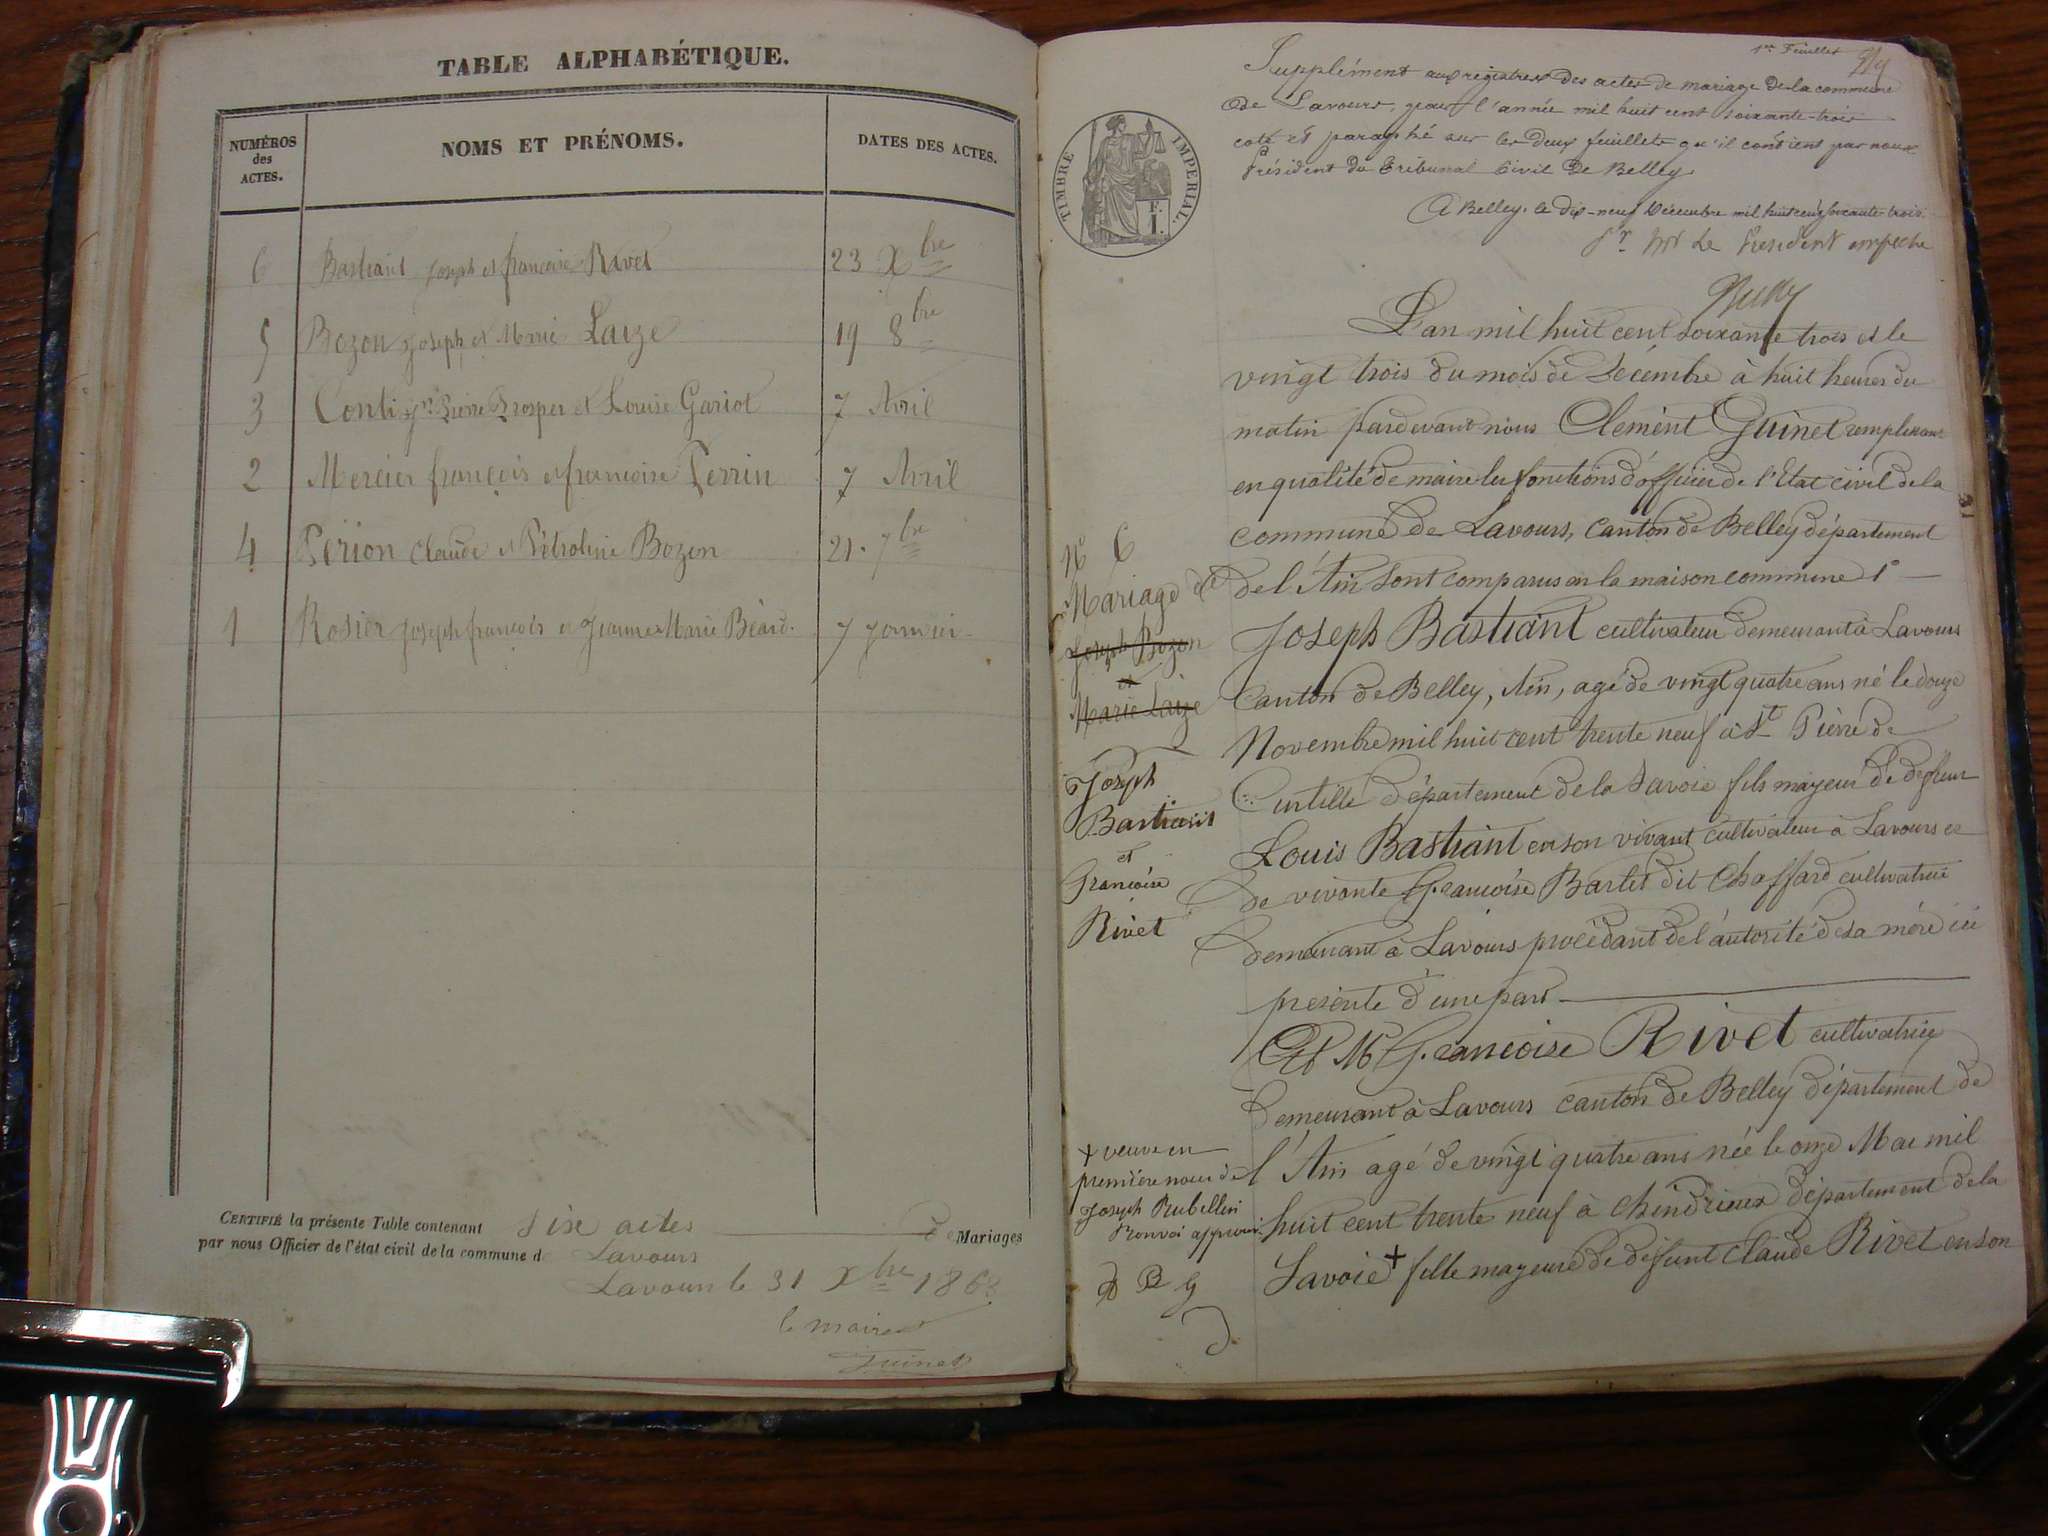 TABLE ALPHABÉTIQUE.
NUMÉROS des ACTES.
NOMS ET PRÉNOMS.
DATES DES ACTES.
6 Bastiant Joseph et françoise Rivet 23 Xbre
5 Bozon Joseph et Marie Laize 19 8bre
3 Conti Jn Pierre Prosper et Louise Gariot 7 Avril
2 Mercier françois et françoise Perrin 7 Avril
4 Périon Claude et Pétroline Bozon 21. 7bre
1 Rosier Joseph françois et Jeanne Marie Béard. 7 Janvier
CERTIFIÉ la présente Table contenant Six actes de Mariages
par nous Officier de l'état civil de la commune de Lavours
Lavours le 31 Xbre 1863
le maire
Guinet
1er Feuillet
Supplément aux registres des actes de mariage de la commune
de Lavours, pour l'année mil huit cent soixante-trois
coté et paraphé sur les deux feuillets qu'il contient par nous
Président du Tribunal Civil de Belley
A Belley, le dix-neuf Décembre mil huit cent soixante-trois.
Pr Mr Le Président empêché
TIMBRE IMPERIAL.
F. 1.
L'an mil huit cent soixante trois et le
vingt trois du mois de Décembre à huit heures du
matin pardevant nous Clement Guinet remplissant
en qualité de maire les fonctions d'officier de l'Etat civil de la
commune de Lavours, canton de Belley département
de l'Ain sont comparus en la maison commune 1º
Joseph Bastiant cultivateur demeurant à Lavours
Canton de Belley, Ain, agé de vingt quatre ans né le douze
Novembre mil huit cent trente neuf à St Pierre de
Curtille département de la Savoie fils mayeur de defunt
Louis Bastiant en son vivant cultivateur à Lavours et
de vivante Françoise Bartet dit Chaffard cultivatrice
demeurant à Lavours procédant de l'autorité de sa mère ici
presente d'une part
Et Me Françoise Rivet cultivatrice
demeurant à Lavours canton de Belley département de
l'Ain agé de vingt quatre ans née le onze Mai mil
huit cent trente neuf à Chindrieux département de la
Savoie + fille mayeure de defunt Claude Rivet en son
No 6
Mariage de
Joseph Bozon
et
Marie Laize
Joseph
Bastiant
et
Françoise
Rivet
+ veuve en
première noces de
Joseph Rubellin
Renvoi approuvé